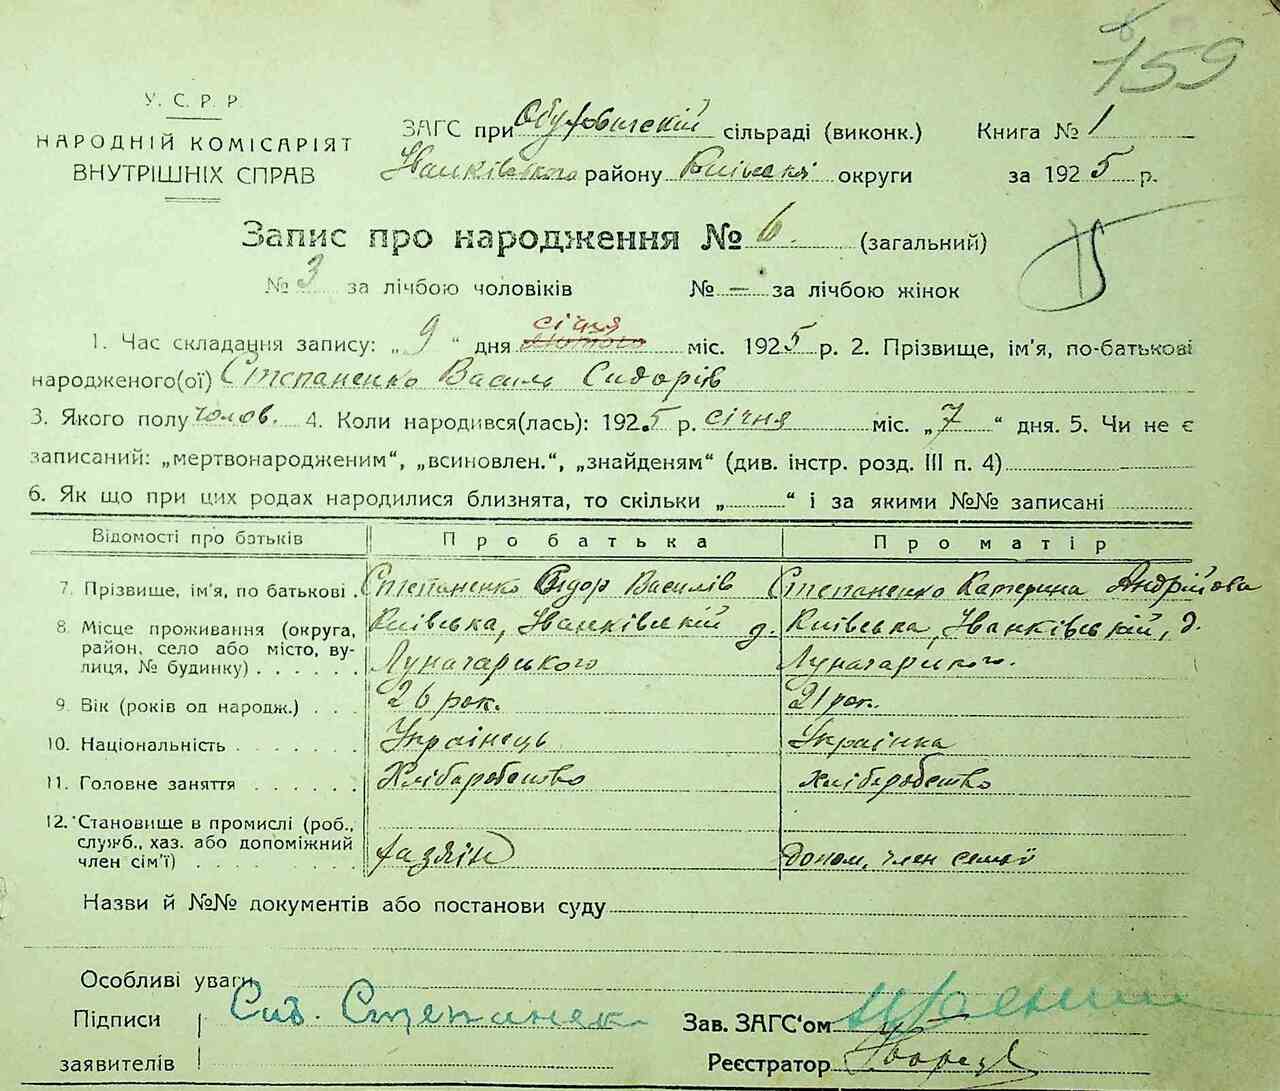 159
У. С. Р. Р.
НАРОДНІЙ КОМІСАРІЯТ
ВНУТРІШНІХ СПРАВ
ЗАГС при Обуховицькій сільраді (виконк.) Книга № 1
Іванківського району Київської округи за 1925 р.
Запис про народження № 6. (загальний)
№ 3 за лічбою чоловіків № — за лічбою жінок
1. Час складання запису: „9“ дня січня лютого міс. 1925 р. 2. Прізвище, ім'я, по-батькові
народженого(ої) Степаненко Василь Сидорів
3. Якого полу чолов. 4. Коли народився(лась): 1925 р. січня міс. „7“ дня. 5. Чи не є
записаний: „мертвонародженим“, „всиновлен.“, „знайденям“ (див. інстр. розд. III п. 4)
6. Як що при цих родах народилися близнята, то скільки „ “ і за якими №№ записані
Відомості про батьків Про батька Про матір
7. Прізвище, ім'я, по батькові . Степаненко Сидор Василів Степаненко Катерина Андрійова
8. Місце проживання (округа, район, село або місто, вулиця, № будинку) . . . . . . Київська, Іванківській д. Київська, Іванківській, д.
Луначарського Луначарського.
9. Вік (років од народж.) . . . 26 рок. 21 рок.
10. Національність . . . . . . . Українець Українка
11. Головне заняття . . . . . . Хліборобство Хліборобство
12. Становище в промислі (роб., служб., хаз. або допоміжний член сім'ї) . . . . . . . хазяїн допом. член семьї
Назви й №№ документів або постанови суду
Особливі уваги
Підписи Сид. Степанек Зав. ЗАГС'ом
заявителів Реєстратор